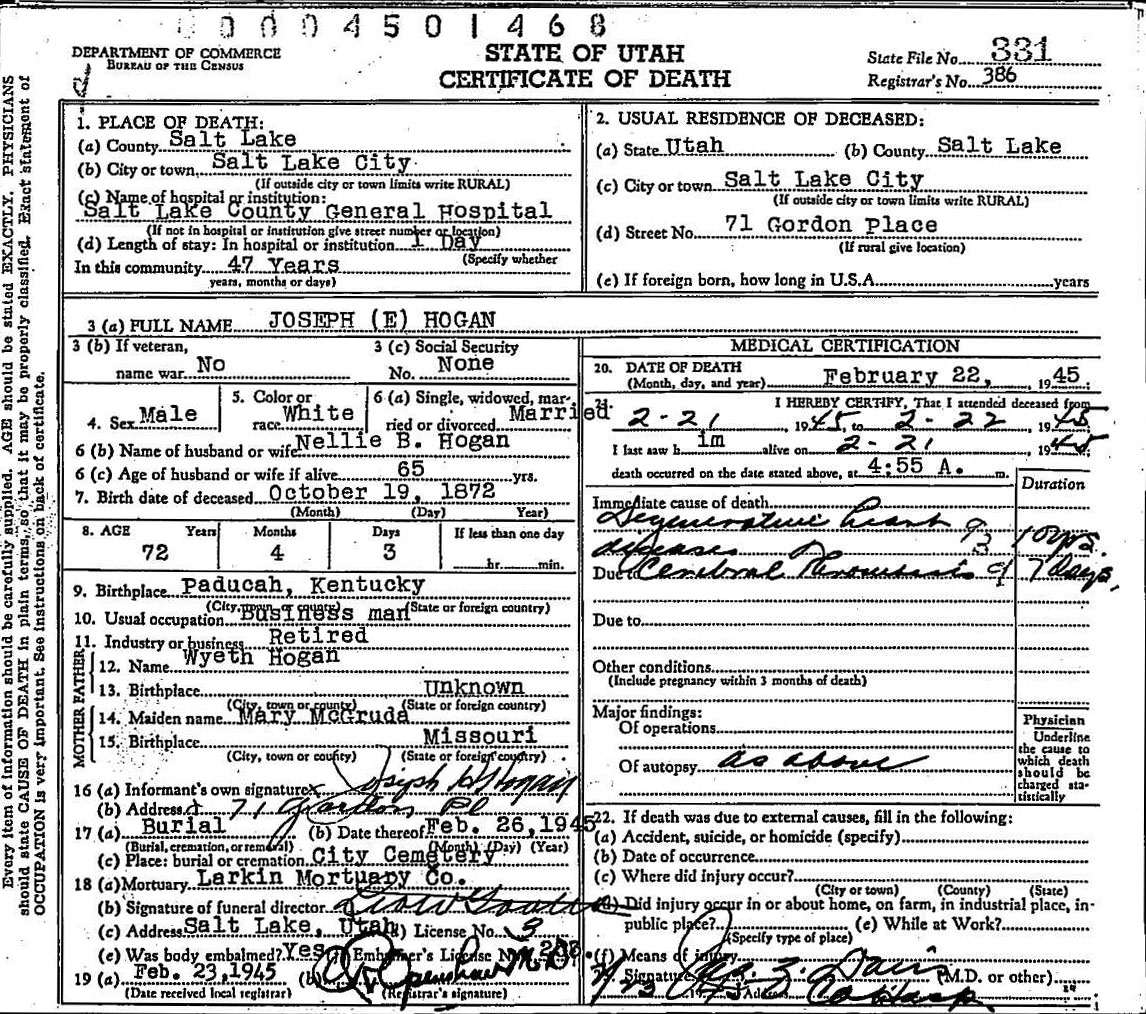 0004501468
DEPARTMENT OF COMMERCE
BUREAU OF THE CENSUS
STATE OF UTAH
CERTIFICATE OF DEATH
State File No. 331
Registrar's No. 386
Every item of information should be carefully supplied. AGE should be stated EXACTLY. PHYSICIANS
should state CAUSE OF DEATH in plain terms, so that it may be properly classified. Exact statement of
OCCUPATION is very important. See instructions on back of certificate.
1. PLACE OF DEATH:
(a) County Salt Lake
(b) City or town Salt Lake City
(If outside city or town limits write RURAL)
(c) Name of hospital or institution:
Salt Lake County General Hospital
(If not in hospital or institution give street number or location)
(d) Length of stay: In hospital or institution 1 Day
(Specify whether
In this community 47 Years
years, months or days)
2. USUAL RESIDENCE OF DECEASED:
(a) State Utah (b) County Salt Lake
(c) City or town Salt Lake City
(If outside city or town limits write RURAL)
(d) Street No. 71 Gordon Place
(If rural give location)
(e) If foreign born, how long in U.S.A. years
3 (a) FULL NAME JOSEPH (E) HOGAN
3 (b) If veteran,
name war No
3 (c) Social Security
No. None
4. Sex Male
5. Color or
race White
6 (a) Single, widowed, mar-
ried or divorced Married
6 (b) Name of husband or wife Nellie B. Hogan
6 (c) Age of husband or wife if alive 65 yrs.
7. Birth date of deceased October 19, 1872
(Month) (Day) Year)
8. AGE Years Months Days If less than one day
72 4 3 hr. min.
9. Birthplace Paducah, Kentucky
(City, town, or county) (State or foreign country)
10. Usual occupation Business man
11. Industry or business Retired
FATHER
12. Name Wyeth Hogan
13. Birthplace Unknown
(City, town or county) (State or foreign country)
MOTHER
14. Maiden name Mary McGruda
15. Birthplace Missouri
(City, town or county) (State or foreign country)
16 (a) Informant's own signature x Joseph Hogan
(b) Address x 71 Gordon Pl
17 (a) Burial (b) Date thereof Feb. 26, 1945
(Burial, cremation, or removal) (Month) (Day) (Year)
(c) Place: burial or cremation City Cemetery
18 (a) Mortuary Larkin Mortuary Co.
(b) Signature of funeral director
(c) Address Salt Lake, Utah (d) License No. 3
(e) Was body embalmed? Yes (f) Embalmer's License No.
19 (a) Feb. 23, 1945 (b) Openshaw M.D.
(Date received local registrar) (Registrar's signature)
MEDICAL CERTIFICATION
20. DATE OF DEATH
(Month, day, and year) February 22, 1945
21. I HEREBY CERTIFY, That I attended deceased from
2-21 1945, to 2-22, 1945
I last saw him alive on 2-21 1945;
death occurred on the date stated above, at 4:55 A. m.
Duration
Immediate cause of death
Degenerative heart
disease 10 yrs.
Due to Cerebral Thrombosis 7 days,
Due to
Other conditions
(Include pregnancy within 3 months of death)
Major findings:
Of operations
Of autopsy as above
Physician
Underline
the cause to
which death
should be
charged sta-
tistically
22. If death was due to external causes, fill in the following:
(a) Accident, suicide, or homicide (specify)
(b) Date of occurrence
(c) Where did injury occur?
(City or town) (County) (State)
(d) Did injury occur in or about home, on farm, in industrial place, in-
public place? (e) While at Work?
(Specify type of place)
(f) Means of injury
Signature Davis (M.D. or other)
2/23 19 Address Co Hosp